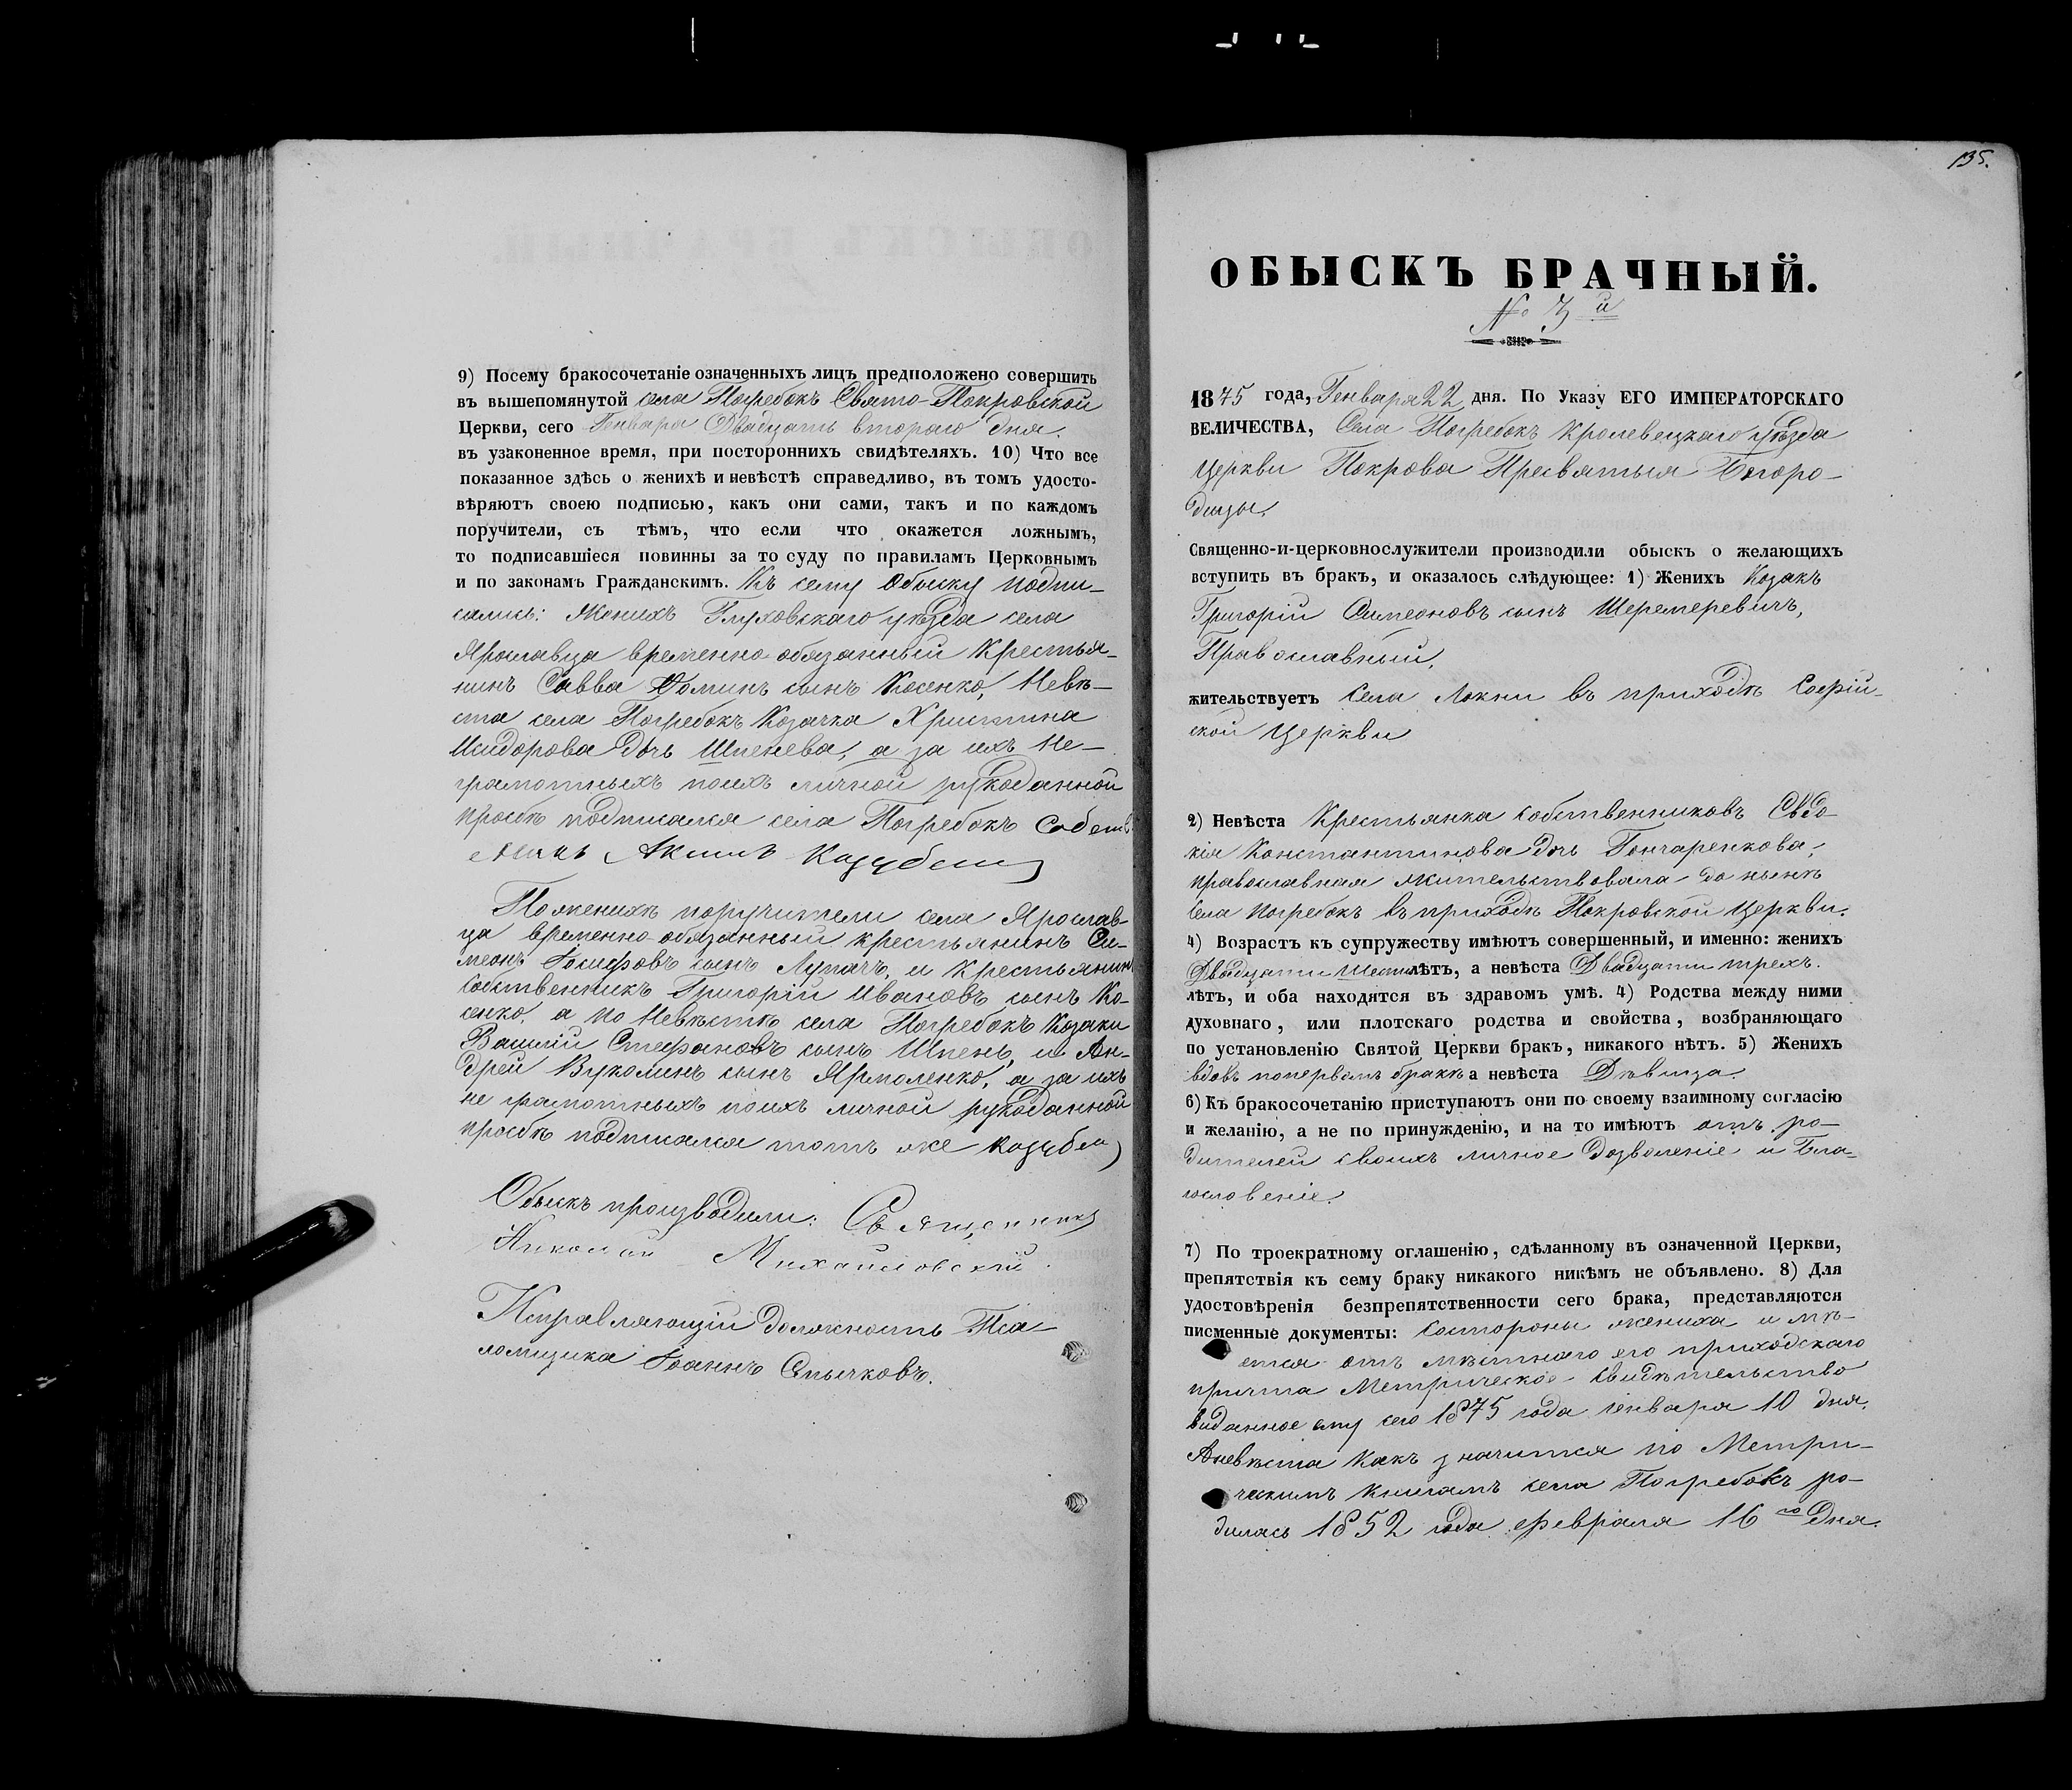 9) Посему бракосочетаніе означенныхъ лицъ предположено совершить
въ вышепомянутой села Погребокъ Свято-Покровской
Церкви, сего Генваря Двадцать втораго дня.
въ узаконенное время, при постороннихъ свидѣтеляхъ. 10) Что все
показанное здѣсь о женихѣ и невѣстѣ справедливо, въ томъ удосто-
вѣряютъ своею подписью, какъ они сами, такъ и по каждомъ
поручители, съ тѣмъ, что если что окажется ложнымъ,
то подписавшіеся повинны за то суду по правиламъ Церковнымъ
и по законамъ Гражданскимъ. Къ сему Обыску подпи-
сались: Женихъ Глуховскаго уѣзда села
Ярославца временно обязанный Крестья-
нинъ Савва Фоминъ сынъ Косенко, Невѣ-
ста села Погребокъ Козачка Христина
Исидорова дочь Шпенева, а за ихъ Не-
грамотныхъ поихъ личной рукоданной
просьбѣ подписался села Погребокъ Собств
Акимъ Козубен
Поженихѣ поручители села Ярослав-
ца временно-обязанный крестьянинъ Си-
меонъ Іосифовъ сынъ Лупачъ, и Крестьянинъ
собственникъ Григорій Ивановъ сынъ Ко-
сенко, а по Невѣстѣ села Погребокъ Козаки
Василій Стефановъ сынъ Шпень, и Ан-
дрей Вуколинъ сынъ Ярмоленко, а за ихъ
не грамотныхъ поихъ личной рукоданной
просьбѣ подписался тотъ же Козубен
Обыскъ производили: Священникъ
Николай Михайловскій.
Исправляющій должность Пса-
ломщика Іоаннъ Спычковъ.
135.
ОБЫСКЪ БРАЧНЫЙ.
№ 3й
1875 года, Генваря 22 дня. По Указу ЕГО ИМПЕРАТОРСКАГО
ВЕЛИЧЕСТВА, Села Погребокъ Кролевецкаго уѣзда
Церкви Покрова Пресвятыя Богоро-
дицы.
Священно-и-церковнослужители производили обыскъ о желающихъ
вступить въ бракъ, и оказалось слѣдующее: 1) Женихъ Козакъ
Григорій Симеоновъ сынъ Шеремеревичъ,
Православный,
жительствуетъ Села Локни въ приходѣ Софій-
ской Церкви
2) Невѣста Крестьянка собственниковъ Евдо-
кія Константинова дочь Гончаренкова,
православная жительствовала до нынѣ
села Погребокъ въ приходѣ Покровской Церкви.
4) Возрастъ къ супружеству имѣютъ совершенный, и именно: женихъ
Двадцати Шести лѣтъ, а невѣста Двадцати трехъ.
лѣтъ, и оба находятся въ здравомъ умѣ. 4) Родства между ними
духовнаго, или плотскаго родства и свойства, возбраняющаго
по установленію Святой Церкви бракъ, никакого нѣтъ. 5) Женихъ
вдовъ попервомъ бракѣ а невѣста Дѣвица.
6) Къ бракосочетанію приступаютъ они по своему взаимному согласію
и желанію, а не по принужденію, и на то имѣютъ отъ ро-
дителей своихъ личное дозволеніе и Бла-
гословеніе.
7) По троекратному оглашенію, сдѣланному въ означенной Церкви,
препятствія къ сему браку никакого никѣмъ не объявлено. 8) Для
удостовѣренія безпрепятственности сего брака, представляются
письменные документы: Состороны жениха имѣ-
ется отъ мѣстнаго его приходскаго
причта Метрическое свидѣтельство
виданное ему сего 1875 года генваря 10 дня.
Аневѣста Какъ значится по Метри-
ческимъ Книгамъ села Погребокъ ро-
дилась 1852 года февраля 16го дня.